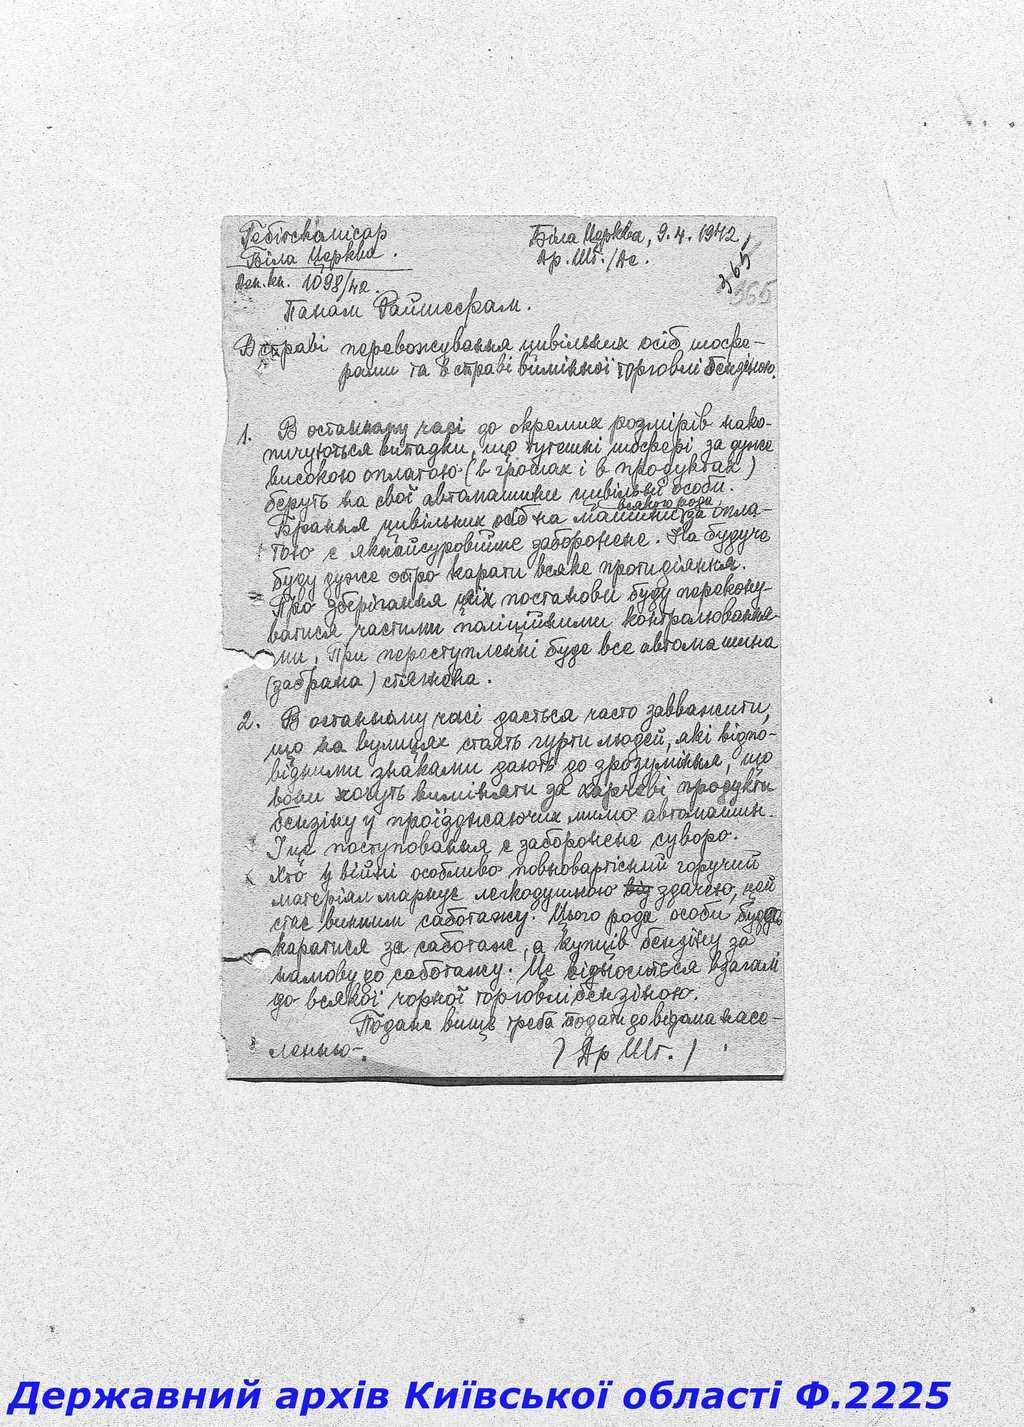 Гебітскомісар
Біла Церква.
Деп. кн. 1098/42.
Біла Церква, 9.4.1942,
Др. Шт./Ас.
365
365
Панам Райшефам.
В справі перевожування цивільних осіб шофе-
рами та в справі вимінної торговлі бензіною.
1. В останньому часі до окремих розмірів нако-
пичуються випадки, що тутешні шофері, за дуже
високою оплатою (в грошах і в продуктах)
беруть на свої автомашини цивільні особи.
Брання цивільних осіб на машини всякого рода за опла-
тою є якнайсуровійше заборонене. На будуче
буду дуже остро карати всяке протидіяння.
Про зберігання цих постанови буду перекону-
ватися частими поліційними контролювання-
ми. При переступленні буде все автомашина
(забрана) стяжена.
2. В останньому часі дається часто завважити,
що на вулицях стоять гурти людей, які відпо-
відними знаками дають до зрозуміння, що
вони хочуть виміняти за харчеві продукти
бензіну у проїзджаючих мимо автомашин.
І це поступовання є заборонене суворо.
Хто у війні особливо повновартісний горучий
матеріал марнує легкодушною від здачею, цей
стає винним саботажу. Цього рода особи будуть
каратися за саботаж, а купців бензіну за
намову до саботажу. Це відноситься взагалі
до всякої чорної торговлі бензіною.
Подане вище треба подати до відома насе-
ленню.
/ Др Шт. /
Державний архів Київської області Ф.2225